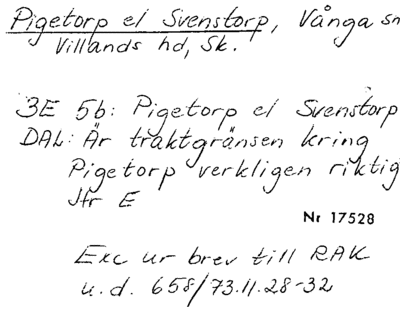 Pigetorp el Svenstorp, Vånga sn
Villands hd, Sk.
3E 5b: Pigetorp el Svenstorp
DAL: Är traktgränsen kring
Pigetorp verkligen riktig
Jfr E
Nr 17528
Exc ur brev till RAK
u.d. 658/73.11.28-32